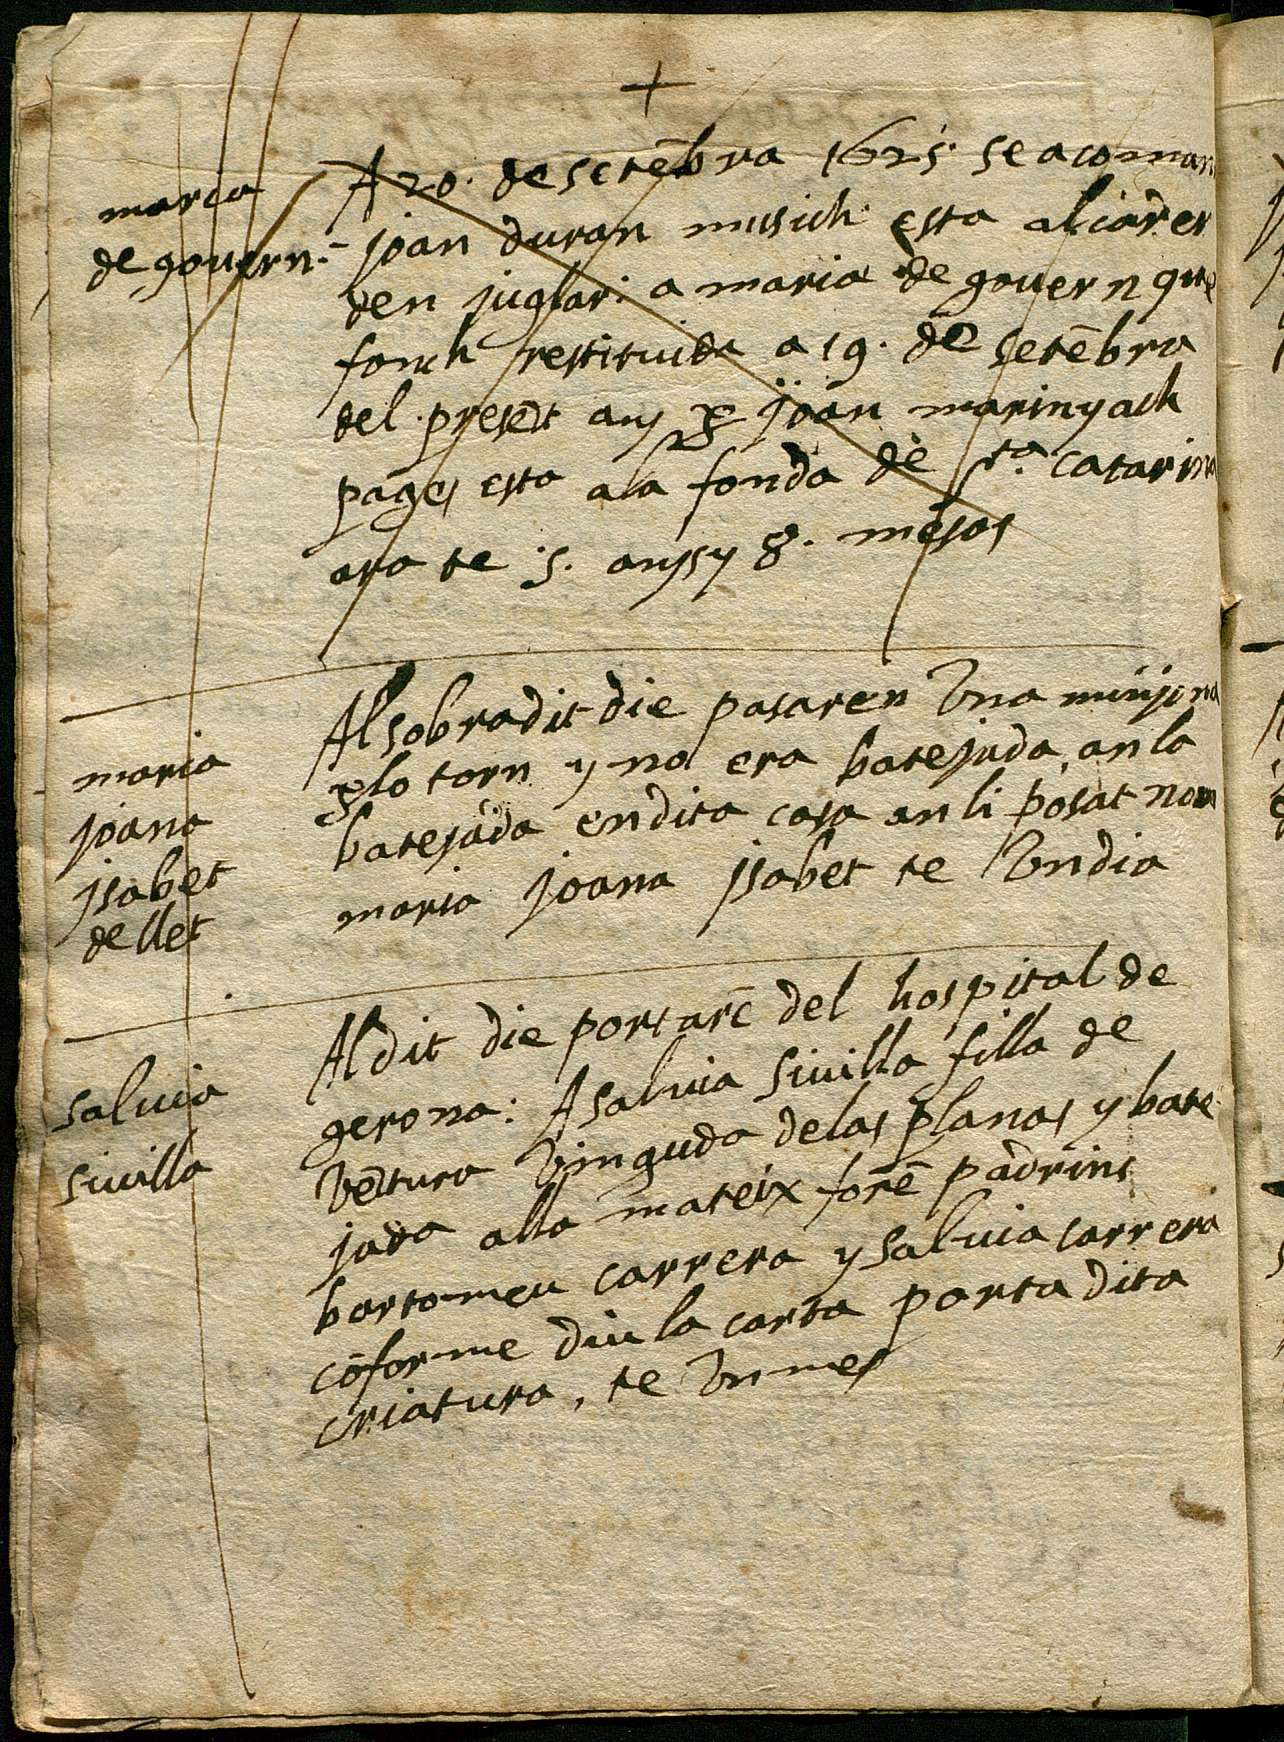 +
maria
de gouern.
A 20. de setēbra 1625. se acoman
joan duran musich esta al carer
den juglar: a maria de gouern que
fonch restituida a 19. de setēbra
del presēt any ꝑ joan marinyach
pages esta ala fonda de Sta. catarina
ara te 5. anys y 8. mesos
maria
joana
jsabet
de llet
Al sobradit die pasaren Vna minyona
ꝑlo torn y no era batejada, an la
batejada en dita casa an li posat nom
maria joana jsabet te Vn dia
saluia
siuilla
Al dit die portarē del hospital de
gerona: A saluia siuilla filla de
Vētura Vinguda de las planas y bate
jada alla mateix forē padrins
bartomeu carrera y saluia carrera
cōforme diu la carta porta dita
criatura, te Vn mes